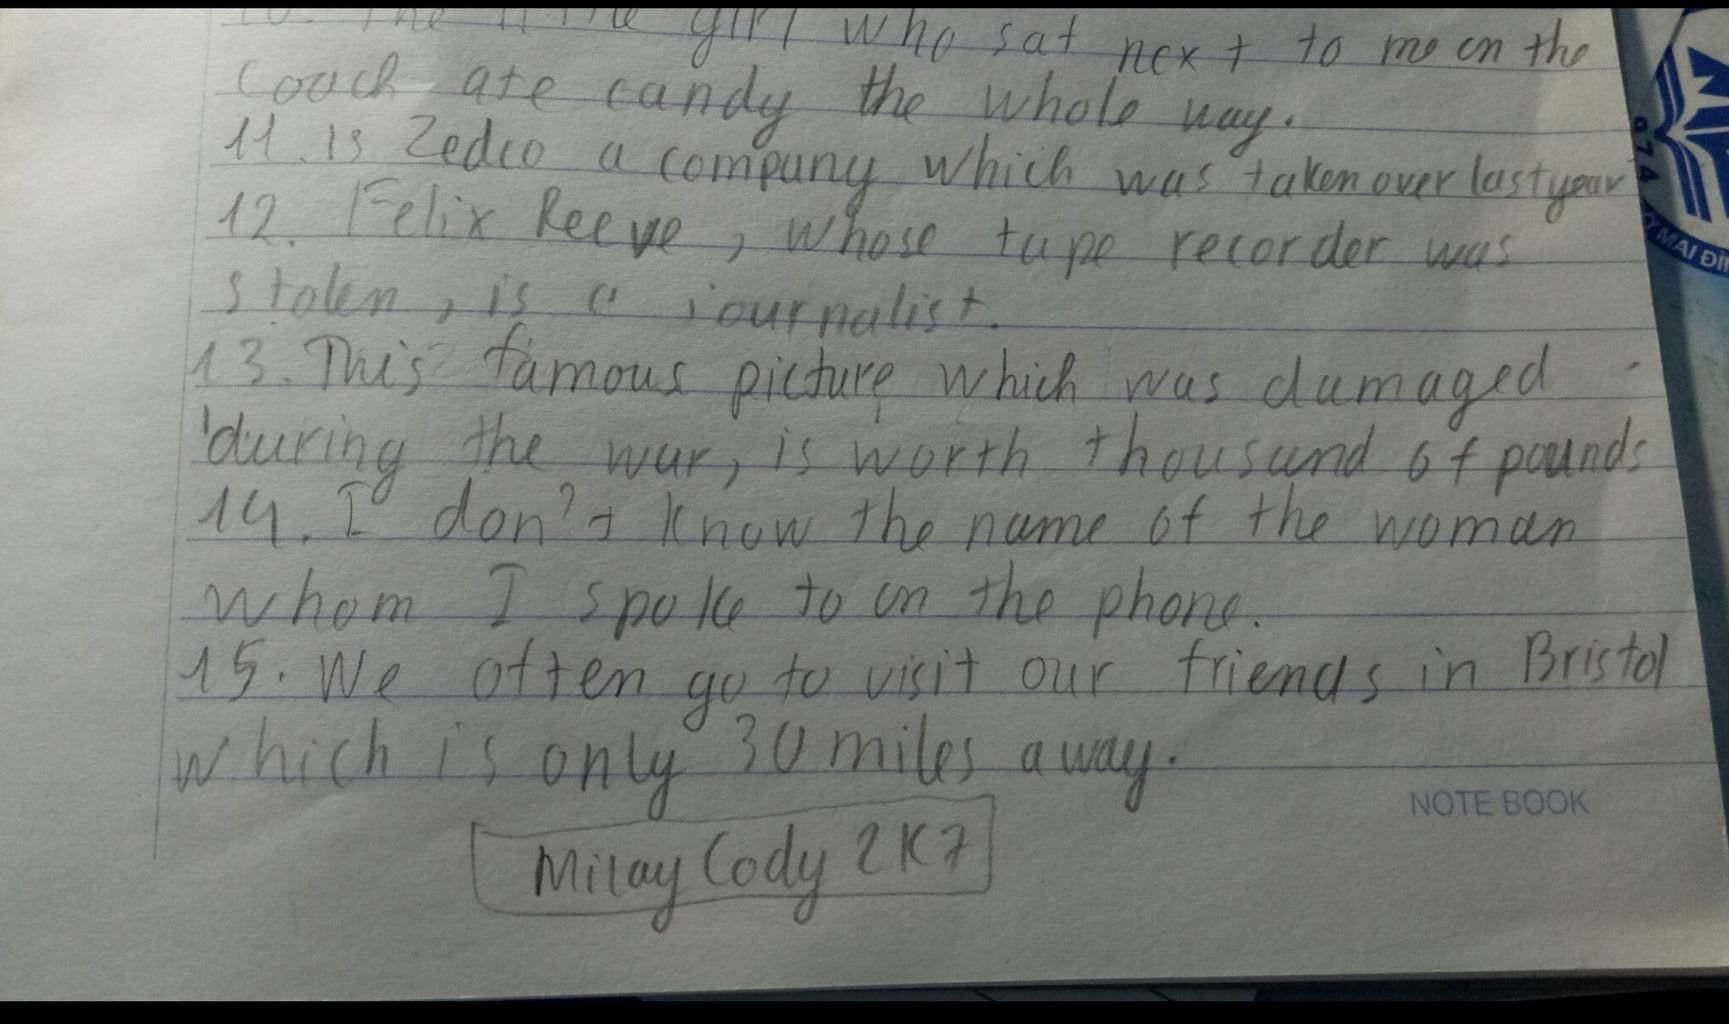 10. The little girl who sat next to me on the
coach ate candy the whole way.
11. is Zedco a company which was taken over last year
12. Felix Reeve, whose tape recorder was
stolen, is a journalist.
13. This famous picture which was damaged
during the war, is worth thousand of pounds
14. I don't know the name of the woman
whom I spoke to on the phone.
15. We often go to visit our friends in Bristol
which is only 30 miles away.
NOTE BOOK
Milay Cody 2K7
974
MAI